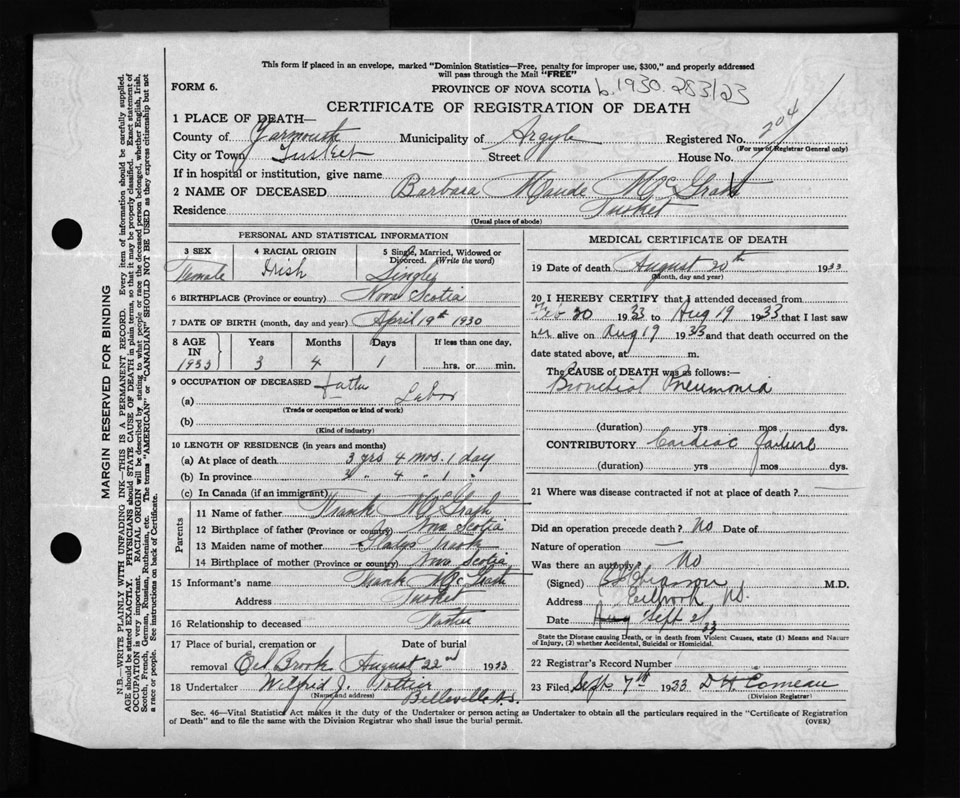 This form if placed in an envelope, marked "Dominion Statistics—Free, penalty for improper use, $300," and properly addressed
will pass through the Mail "FREE"
FORM 6.
PROVINCE OF NOVA SCOTIA b.1930.283123
CERTIFICATE OF REGISTRATION OF DEATH
1 PLACE OF DEATH—
County of Yarmouth Municipality of Argyle Registered No. 204
(For use of Registrar General only)
City or Town Tusket Street House No.
If in hospital or institution, give name
2 NAME OF DECEASED Barbara Maude McGrath
Residence Tusket
(Usual place of abode)
PERSONAL AND STATISTICAL INFORMATION
3 SEX 4 RACIAL ORIGIN 5 Single, Married, Widowed or Divorced. (Write the word)
Female Irish Single
6 BIRTHPLACE (Province or country) Nova Scotia
7 DATE OF BIRTH (month, day and year) April 19th 1930
8 AGE IN Years Months Days If less than one day,
1933 3 4 1 hrs. or min.
9 OCCUPATION OF DECEASED
(a) Labor
(Trade or occupation or kind of work)
(b)
(Kind of industry)
10 LENGTH OF RESIDENCE (in years and months)
(a) At place of death 3 yrs 4 mos. 1 day
(b) In province 3 " 4 " 1 "
(c) In Canada (if an immigrant)
Parents
11 Name of father Frank McGrath
12 Birthplace of father (Province or country) Nova Scotia
13 Maiden name of mother Gladys
14 Birthplace of mother (Province or country) Nova Scotia
15 Informant's name Frank McGrath
Address Tusket
16 Relationship to deceased Father
17 Place of burial, cremation or removal Date of burial
Eel Brook August 22nd 1933
18 Undertaker Wilfrid J. Pottier
(Name and address)
Belleville N.S.
MEDICAL CERTIFICATE OF DEATH
19 Date of death August 20th 1933
(Month, day and year)
20 I HEREBY CERTIFY that I attended deceased from
Feb 20 1933 to Aug 19 1933 that I last saw
her alive on Aug 19 1933 and that death occurred on the
date stated above, at m.
The CAUSE of DEATH was as follows:—
Bronchial Pneumonia
(duration) yrs mos. dys.
CONTRIBUTORY Cardiac failure
(duration) yrs mos dys.
21 Where was disease contracted if not at place of death?
Did an operation precede death? No Date of
Nature of operation —
Was there an autopsy? No
(Signed) M.D.
Address Eelbrook N.S.
Date Aug Sept 2/33
State the Disease causing Death, or in death from Violent Causes, state (1) Means and Nature
of Injury, (2) whether Accidental, Suicidal or Homicidal.
22 Registrar's Record Number
23 Filed Sept 7th 1933 Comeau
(Division Registrar)
Sec. 46—Vital Statistics Act makes it the duty of the Undertaker or Person acting as Undertaker to obtain all the particulars required in the "Certificate of Registration
of Death" and to file the same with the Division Registrar who shall issue the burial permit. (OVER)
MARGIN RESERVED FOR BINDING
N.B.—WRITE PLAINLY WITH UNFADING INK—THIS IS A PERMANENT RECORD. Every item of information should be carefully supplied.
AGE should be stated EXACTLY. PHYSICIANS should STATE CAUSE OF DEATH in plain terms, so that it may be properly classified. Exact statement of
OCCUPATION is very important. RACIAL ORIGIN will be described by stating to what people or race the deceased person belonged, whether English, Irish,
Scotch, French, German, Russian, Ruthenian, etc. The terms "AMERICAN" or "CANADIAN" SHOULD NOT BE USED as they express citizenship but not
a race or people. See instructions on back of Certificate.